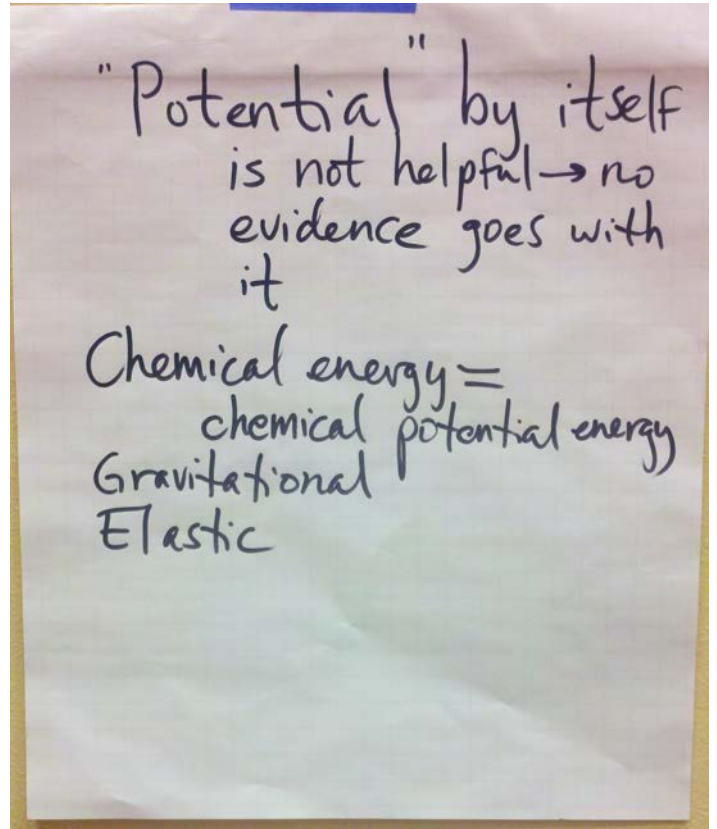 "Potential" by itself
is not helpful→no
evidence goes with
it
Chemical energy=
chemical potential energy
Gravitational
Elastic